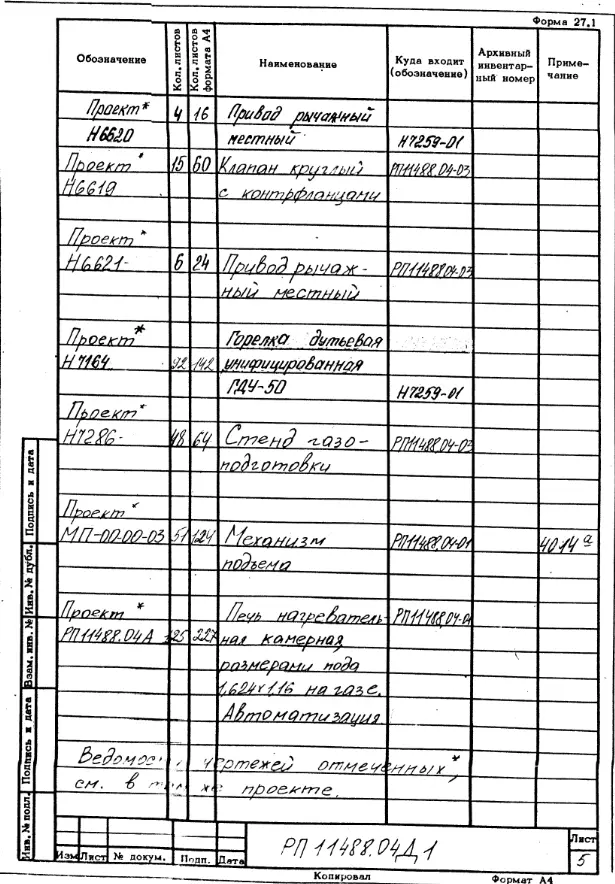 Форма 27.1
Обозначение Кол. листов Кол. листов формата А4 Наименование Куда входит (обозначение) Архивный инвентарный номер Примечание
Проект* 4 16 Привод рычажный
Н6620 местный Н7259-01
Проект* 15 60 Клапан круглый РП11488.04-03
Н6619 с контрфланцами
Проект*
Н6621- 6 24 Привод рычаж- РП11488.04-03
ный местный
Проект* Горелка дутьевая
Н7164 92 142 унифицированная
ГДУ-50 Н7259-01
Проект*
Н7286- 48 64 Стенд газо- РП11488.04-03
подготовки
Проект*
МП-00-00-03 51 124 Механизм РП11488.04-01 4014а
подъема
Проект* Печь нагреватель- РП11488.04-01
РП11488.04А 227 ная камерная,
размерами пода
1,624х1,16 на газе.
Автоматизация
чертежей отмеченных*,
см. в том же проекте.
Инв. № подл. Подпись и дата Взам. инв. № Инв. № дубл. Подпись и дата
Изм Лист № докум. Подп. Дата
РП 11488.04Д1
Лист
5
Копировал Формат А4